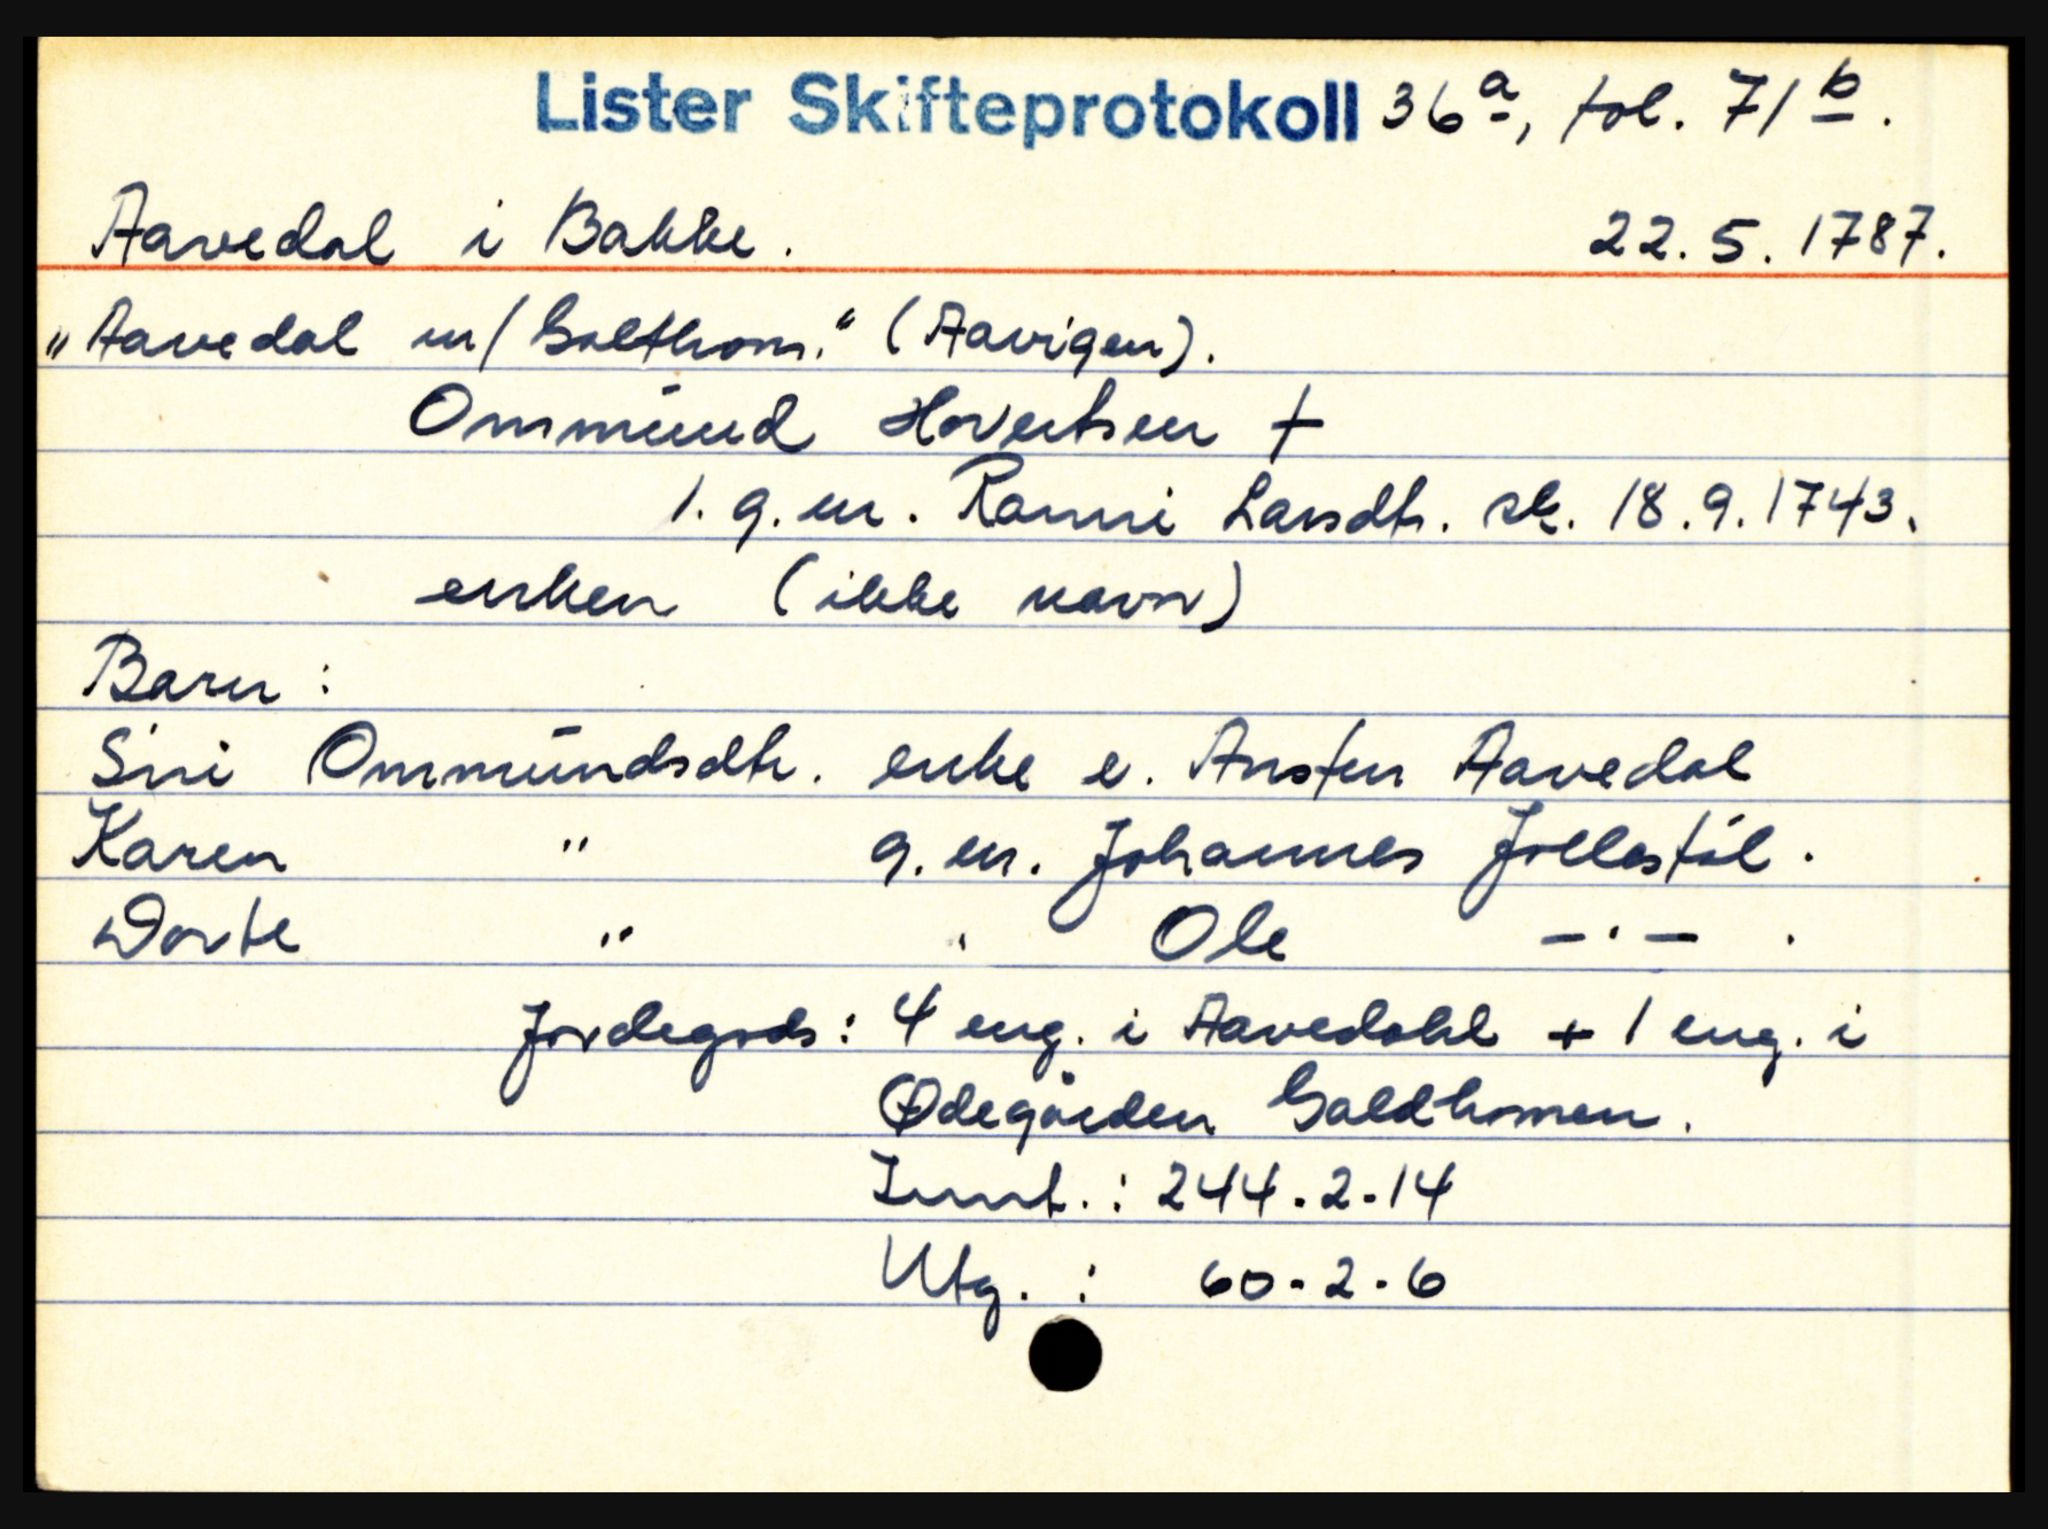 Lister Skifteprotokoll 36a, fol. 71b.
Aavedal i Bakke. 22.5.1787.
"Aavedal m/ Galthom." (Aavigen).
Ommund Hovertsen †
1. g.m. Ranni Larsdtr. sk. 18.9.1743.
enken (ikke navn)
Barn:
Siri Ommundsdtr. enke e. Austen Aavedal
Karen " g.m. Johannes Jollestøl.
Dorte " " Ole -"- .
Jordegods: 4 eng. i Aavedahl + 1 eng. i
Ødegården Galdhomen.
Innt.: 244-2-14
Utg. : 60-2-6